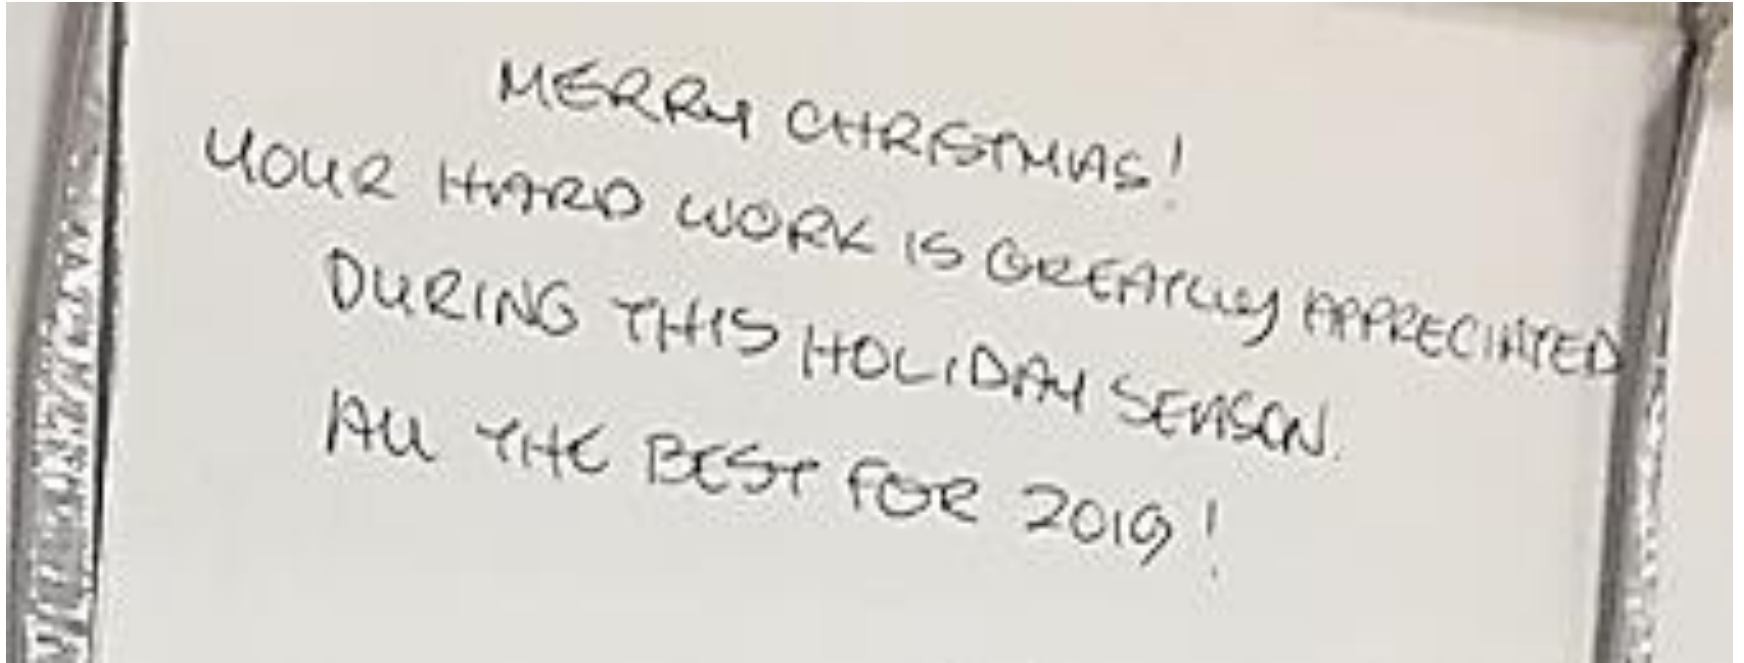 MERRY CHRISTMAS!
YOUR HARD WORK IS GREATLY APPRECIATED
DURING THIS HOLIDAY SEASON.
ALL THE BEST FOR 2019!